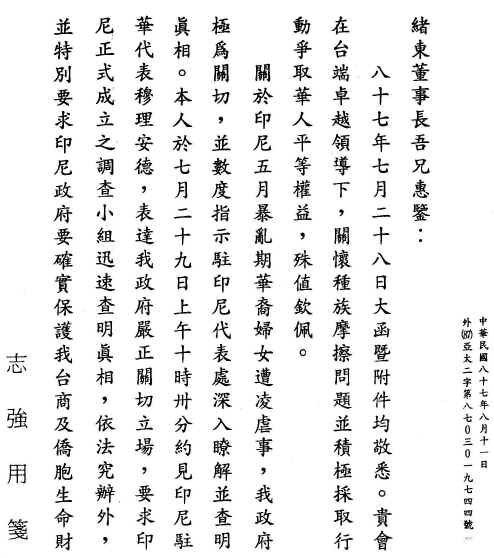 中華民國八十七年八月十一日
外(87)亞太二字第八七０三０一九七四四號
緒東董事長吾兄惠鑒：
八十七年七月二十八日大函暨附件均敬悉。貴會
在台端卓越領導下，關懷種族摩擦問題並積極採取行
動爭取華人平等權益，殊值欽佩。
關於印尼五月暴亂期華裔婦女遭凌虐事，我政府
極為關切，並數度指示駐印尼代表處深入瞭解並查明
眞相。本人於七月二十九日上午十時卅分約見印尼駐
華代表穆理安德，表達我政府嚴正關切立場，要求印
尼正式成立之調查小組迅速查明眞相，依法究辦外，
並特別要求印尼政府要確實保護我台商及僑胞生命財
志強用箋